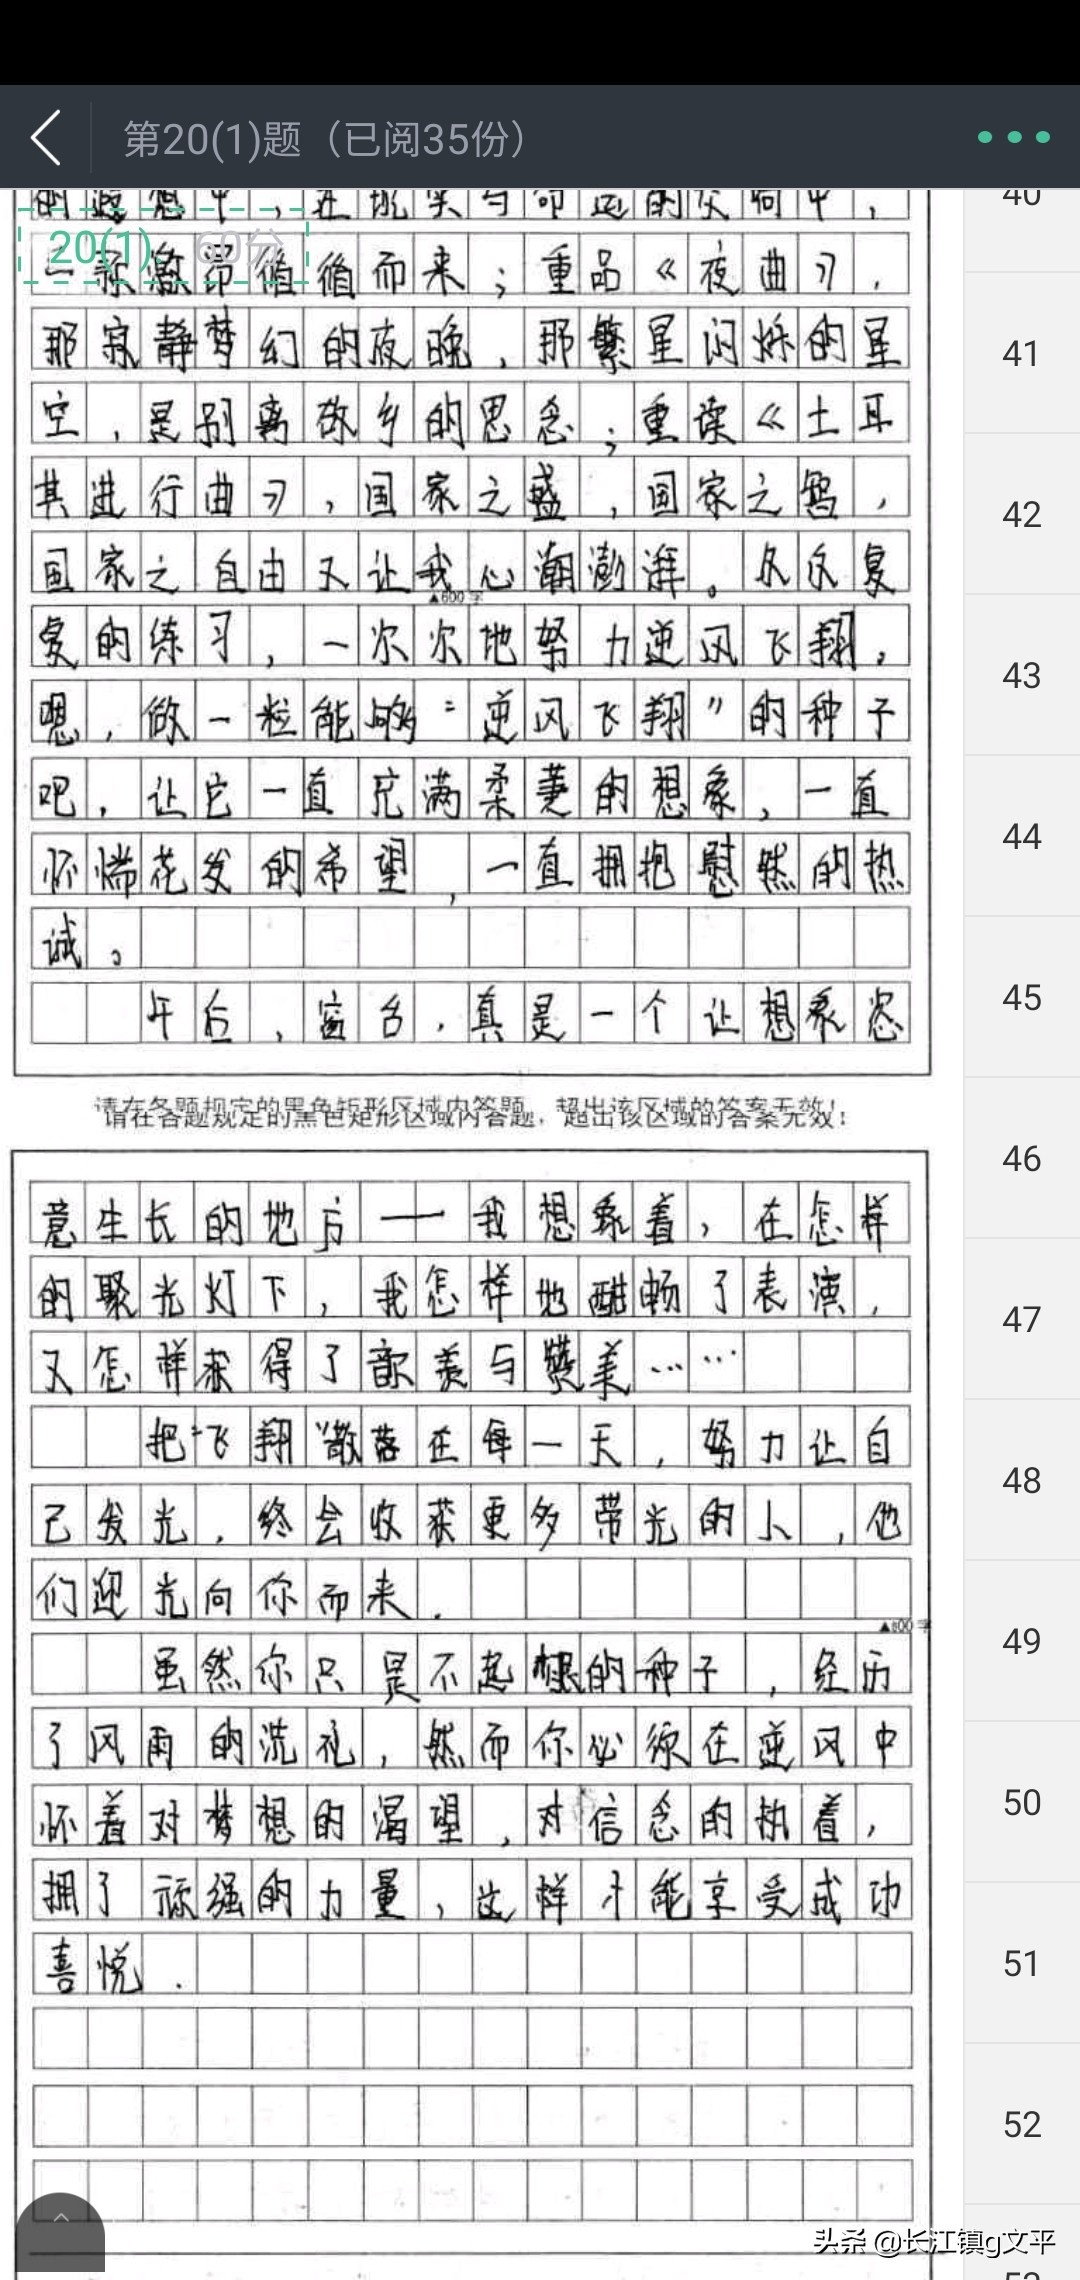 第20(1)题（已阅35份）
的遐想中，在现实与命运的交响中，
20(1) 60分
一
循循而来；重品《夜曲》，
那寂静梦幻的夜晚，那繁星闪烁的星
空，是别离故乡的思念；重读《土耳
其进行曲》，国家之盛，国家之
，
国家之自由又让我心潮澎湃。反反复
▲600字
复的练习，一次次地努力逆风飞翔，
嗯，做一粒能够“逆风飞翔”的种子
吧，让它一直充满柔美的想象，一直
怀揣花发的希望，一直拥抱慰然的热
诚。
午后，窗台，真是一个让想象恣
请在各题规定的黑色矩形区域内答题，超出该区域的答案无效！
请在各题规定的黑色矩形区域内答题，超出该区域的答案无效！
意生长的地方——我想象着，在怎样
的聚光灯下，我怎样地酣畅了表演，
又怎样获得了歆羡与赞美……
把“飞翔”散落在每一天，努力让自
己发光，终会收获更多带光的人，他
们迎光向你而来．
▲800字
虽然你只是不起眼的种子，经历
了风雨的洗礼，然而你必须在逆风中
怀着对梦想的渴望，对信念的执着，
拥了顽强的力量，这样才能享受成功
喜悦．
40
41
42
43
44
45
46
47
48
49
50
51
52
53
头条 @长江镇g文平